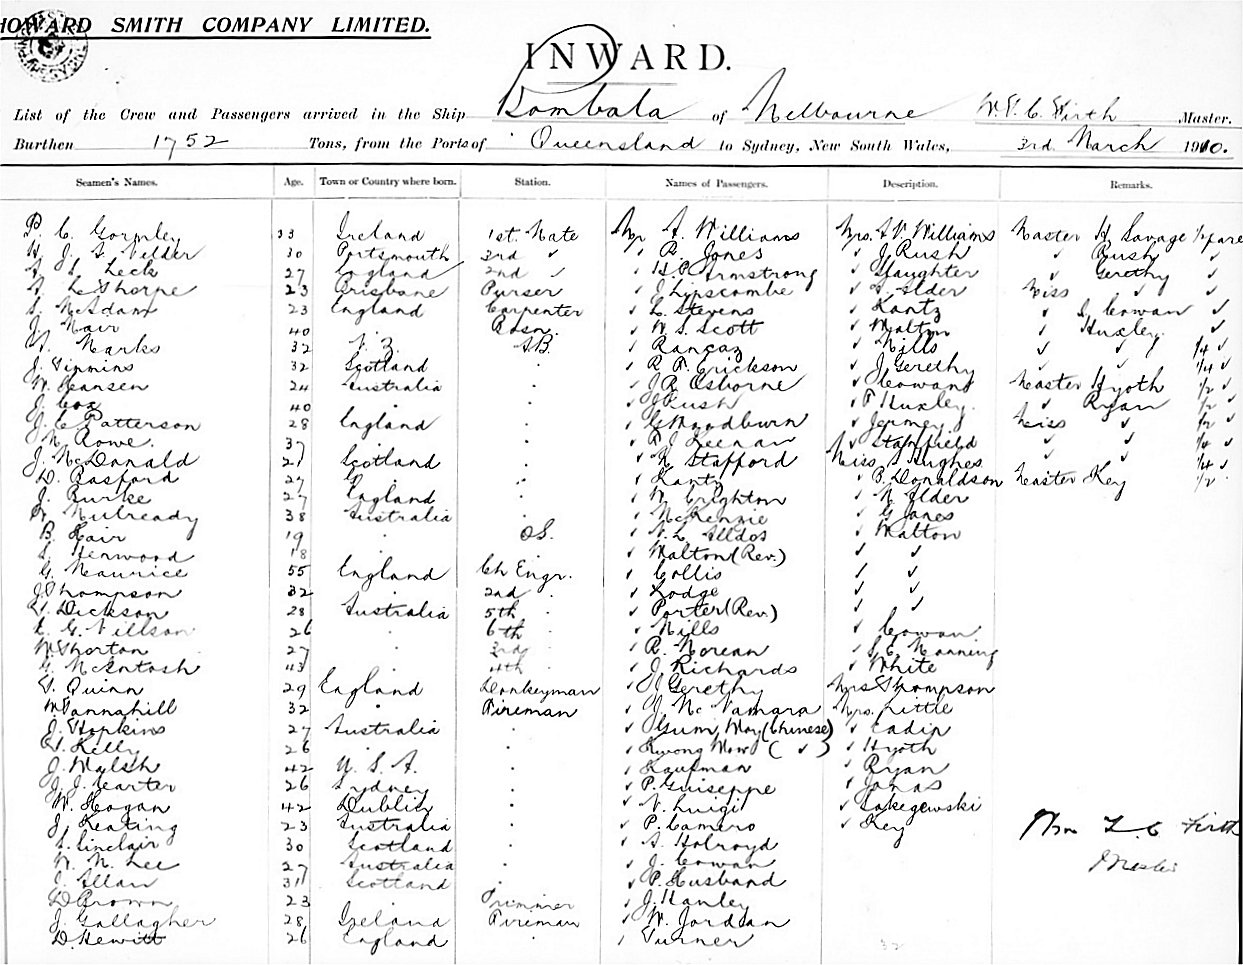 HOWARD SMITH COMPANY LIMITED.
INWARD.
List of the Crew and Passengers arrived in the Ship Bombala of Melbourne W. T. C. Firth Master.
Burthen 1752 Tons, from the Ports of Queensland to Sydney, New South Wales, 3rd March 1910.
Seamen's Names. Age. Town or Country where born. Station. Names of Passengers. Description. Remarks.
P. C. Gormley 33 Ireland 1st. Mate Mr A. Williams Mrs. Williams Master H Savage
30 Portsmouth 3rd " R. Jones J Rush Rush
Leck 27 England 2nd " H. P. Armstrong Slaughter Gerethy
Thorpe 23 Brisbane Purser J Lipscombe Alder Miss
S. McAdam 23 England Carpenter L. Stevens Kantz J. Cowan
J. Nair 40 Bosn. W. S. Scott Walton Huxley
Marks 32 N. Z. A.B. Rancaz Mills 1/4
J. Timmins 32 Scotland R. P. Erickson J Gerethy 1/4
W. Hansen 24 Australia J R Osborne Cowan Master Hyoth 1/2
J Cox 40 J Rush P Huxley. Ryan 1/2
J. C Patterson 28 England G Woodburn Jermey Miss 1/2
N. Rowe. 37 Keenan Stanfield 1/4
J. McDonald 21 Scotland N Stafford Miss S Hughes 1/4
D. Basford 27 Kantz P. Donaldson Master Key 1/2
J. Burke 27 England W. Crighton N Alder
Mulready 38 Australia McKenzie G Jones
B. Hair 19 OS. Alldos Walton
Henwood 18 Walton (Rev.)
G. Maurice 55 England Ch Engr. Collis
J Thompson 32 2nd Lodge
Dickson 28 Australia 5th Porter (Rev.)
G. Villson 26 6th Mills Cowan
W Horton 27 3rd R. Morean Manning
G. McIntosh 43 4th J. Richards White
T. Quinn 29 England Donkeyman J Gerethy Mrs Thompson
W Tannahill 32 Fireman J. McNamara Mrs. Little
J. Hopkins 27 Australia Gum May (Chinese) Eadie
T. Kelly 26 Kwong Mow ( " ) Hyoth
J. Walsh 42 U. S. A. Kaufman Ryan
J. J. Carter 26 Sydney P. Guiseppe Jonas
W. Hogan 42 Dublin V. Luigi Lakegewski
J. Keating 23 Australia P. Camero Key
S. Sinclair 30 Scotland A. Holroyd Firth
W. N. Lee 27 Australia J. Cowan Master
J. Allan 31 Scotland P. Husband
D Brown 23 Trimmer J. Hanley
J. Gallagher 28 Ireland Fireman W. Jordan
D. Hewitt 26 England Turner